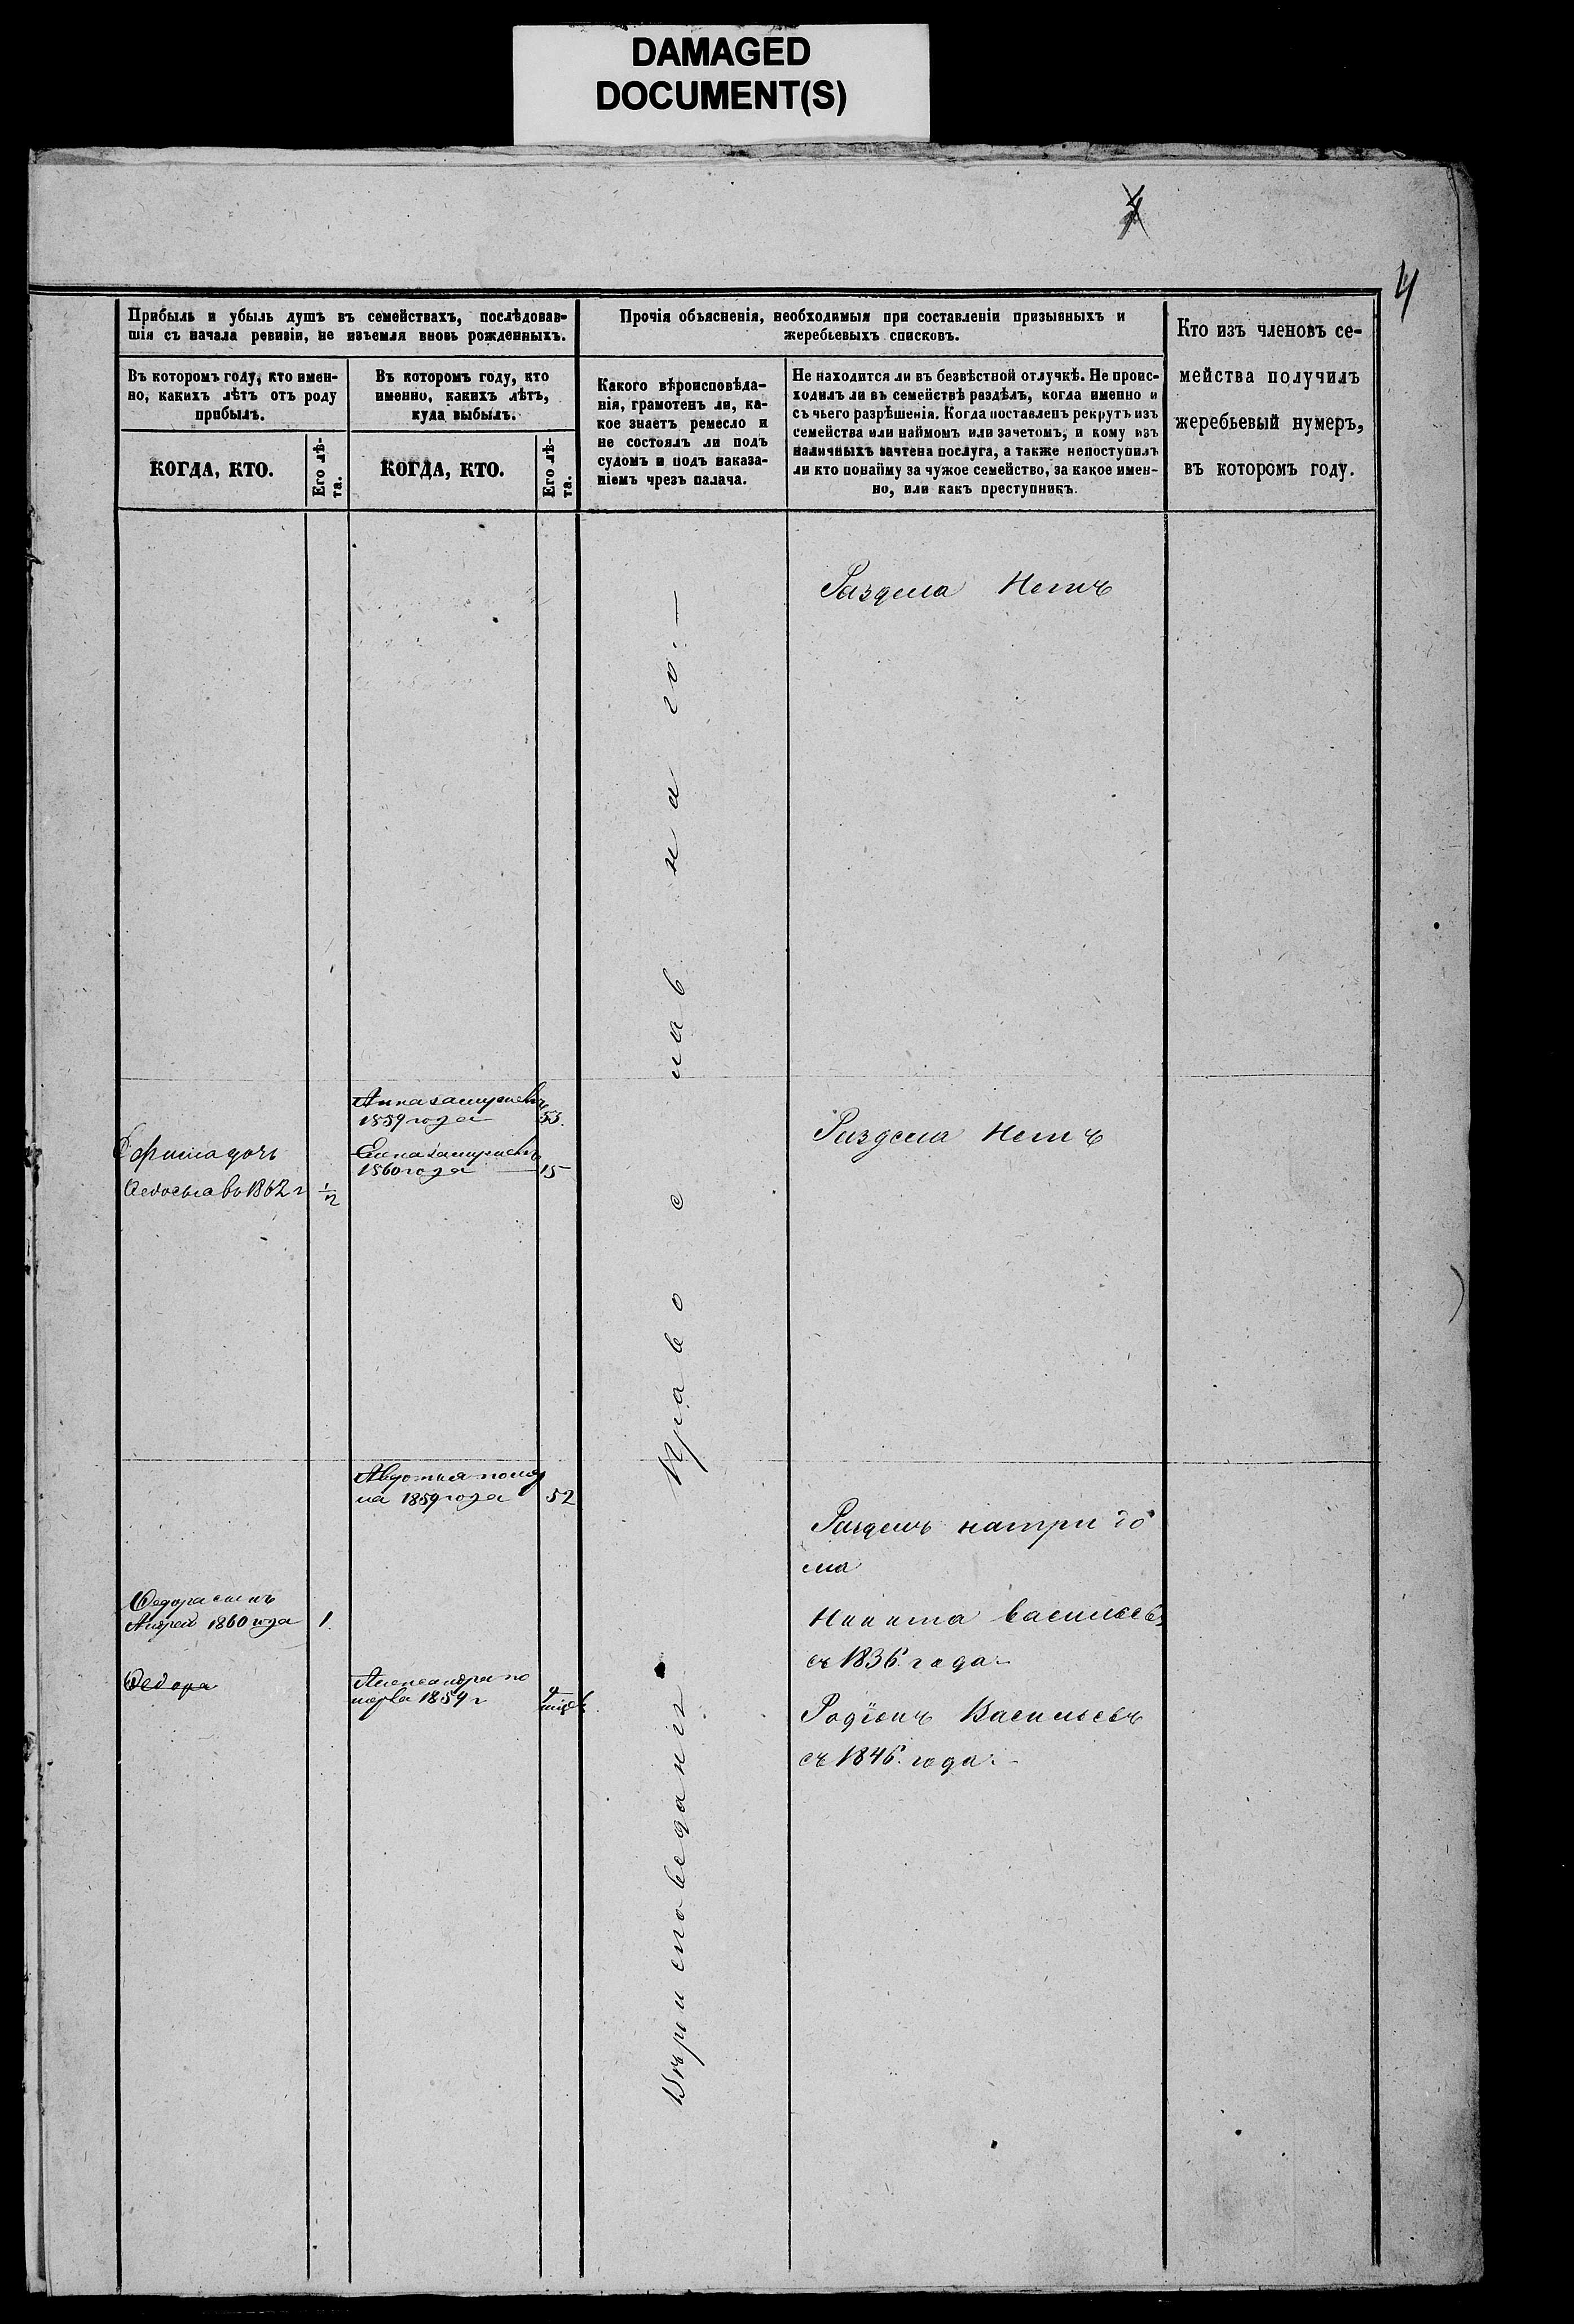 DAMAGED
DOCUMENT(S)
4
Прибыль и убыль душъ въ семействахъ, послѣдовав-
шія съ начала ревизіи, не изъемля вновь рожденныхъ.
Въ которомъ году, кто имен-
но, какихъ лѣтъ отъ роду
прибылъ.
КОГДА, КТО.
Его лѣ-
та.
Въ которомъ году, кто
именно, какихъ лѣтъ,
куда выбылъ.
КОГДА, КТО.
Его лѣ-
та.
Прочія объясненія, необходимыя при составленіи призывныхъ и
жеребьевыхъ списковъ.
Какого вѣроисповѣда-
нія, грамотенъ ли, ка-
кое знаетъ ремесло и
не состоялъ ли подъ
судомъ и подъ наказа-
ніемъ чрезъ палача.
Не находится ли въ безвѣстной отлучкѣ. Не проис-
ходилъ ли въ семействѣ раздѣлъ, когда именно и
съ чьего разрѣшенія. Когда поставленъ рекрутъ изъ
семейства или наймомъ или зачетомъ, и кому изъ
наличныхъ зачтена послуга, а также непоступилъ
ли кто понайму за чужое семейство, за какое имен-
но, или какъ преступникъ.
Кто изъ членовъ се-
мейства получилъ
жеребьевый нумеръ,
въ которомъ году.
Раздела Нетъ
Анна замужевъ
1859 года 53.
Елена замужевъ
1860 года 15
дочь
Федосья въ 1862 г 1/2
Раздела Нетъ
Авдотья помер
ла 1859 года 52
Разделъ натри до
ма
Федора сынъ
Андрей 1860 года 1.
Никита васильевъ
съ 1836. года
Федора
Александра по
мерла 1859 г 4
Родіонъ Васильевъ
съ 1846. года
Вероисповедания Православнаго.